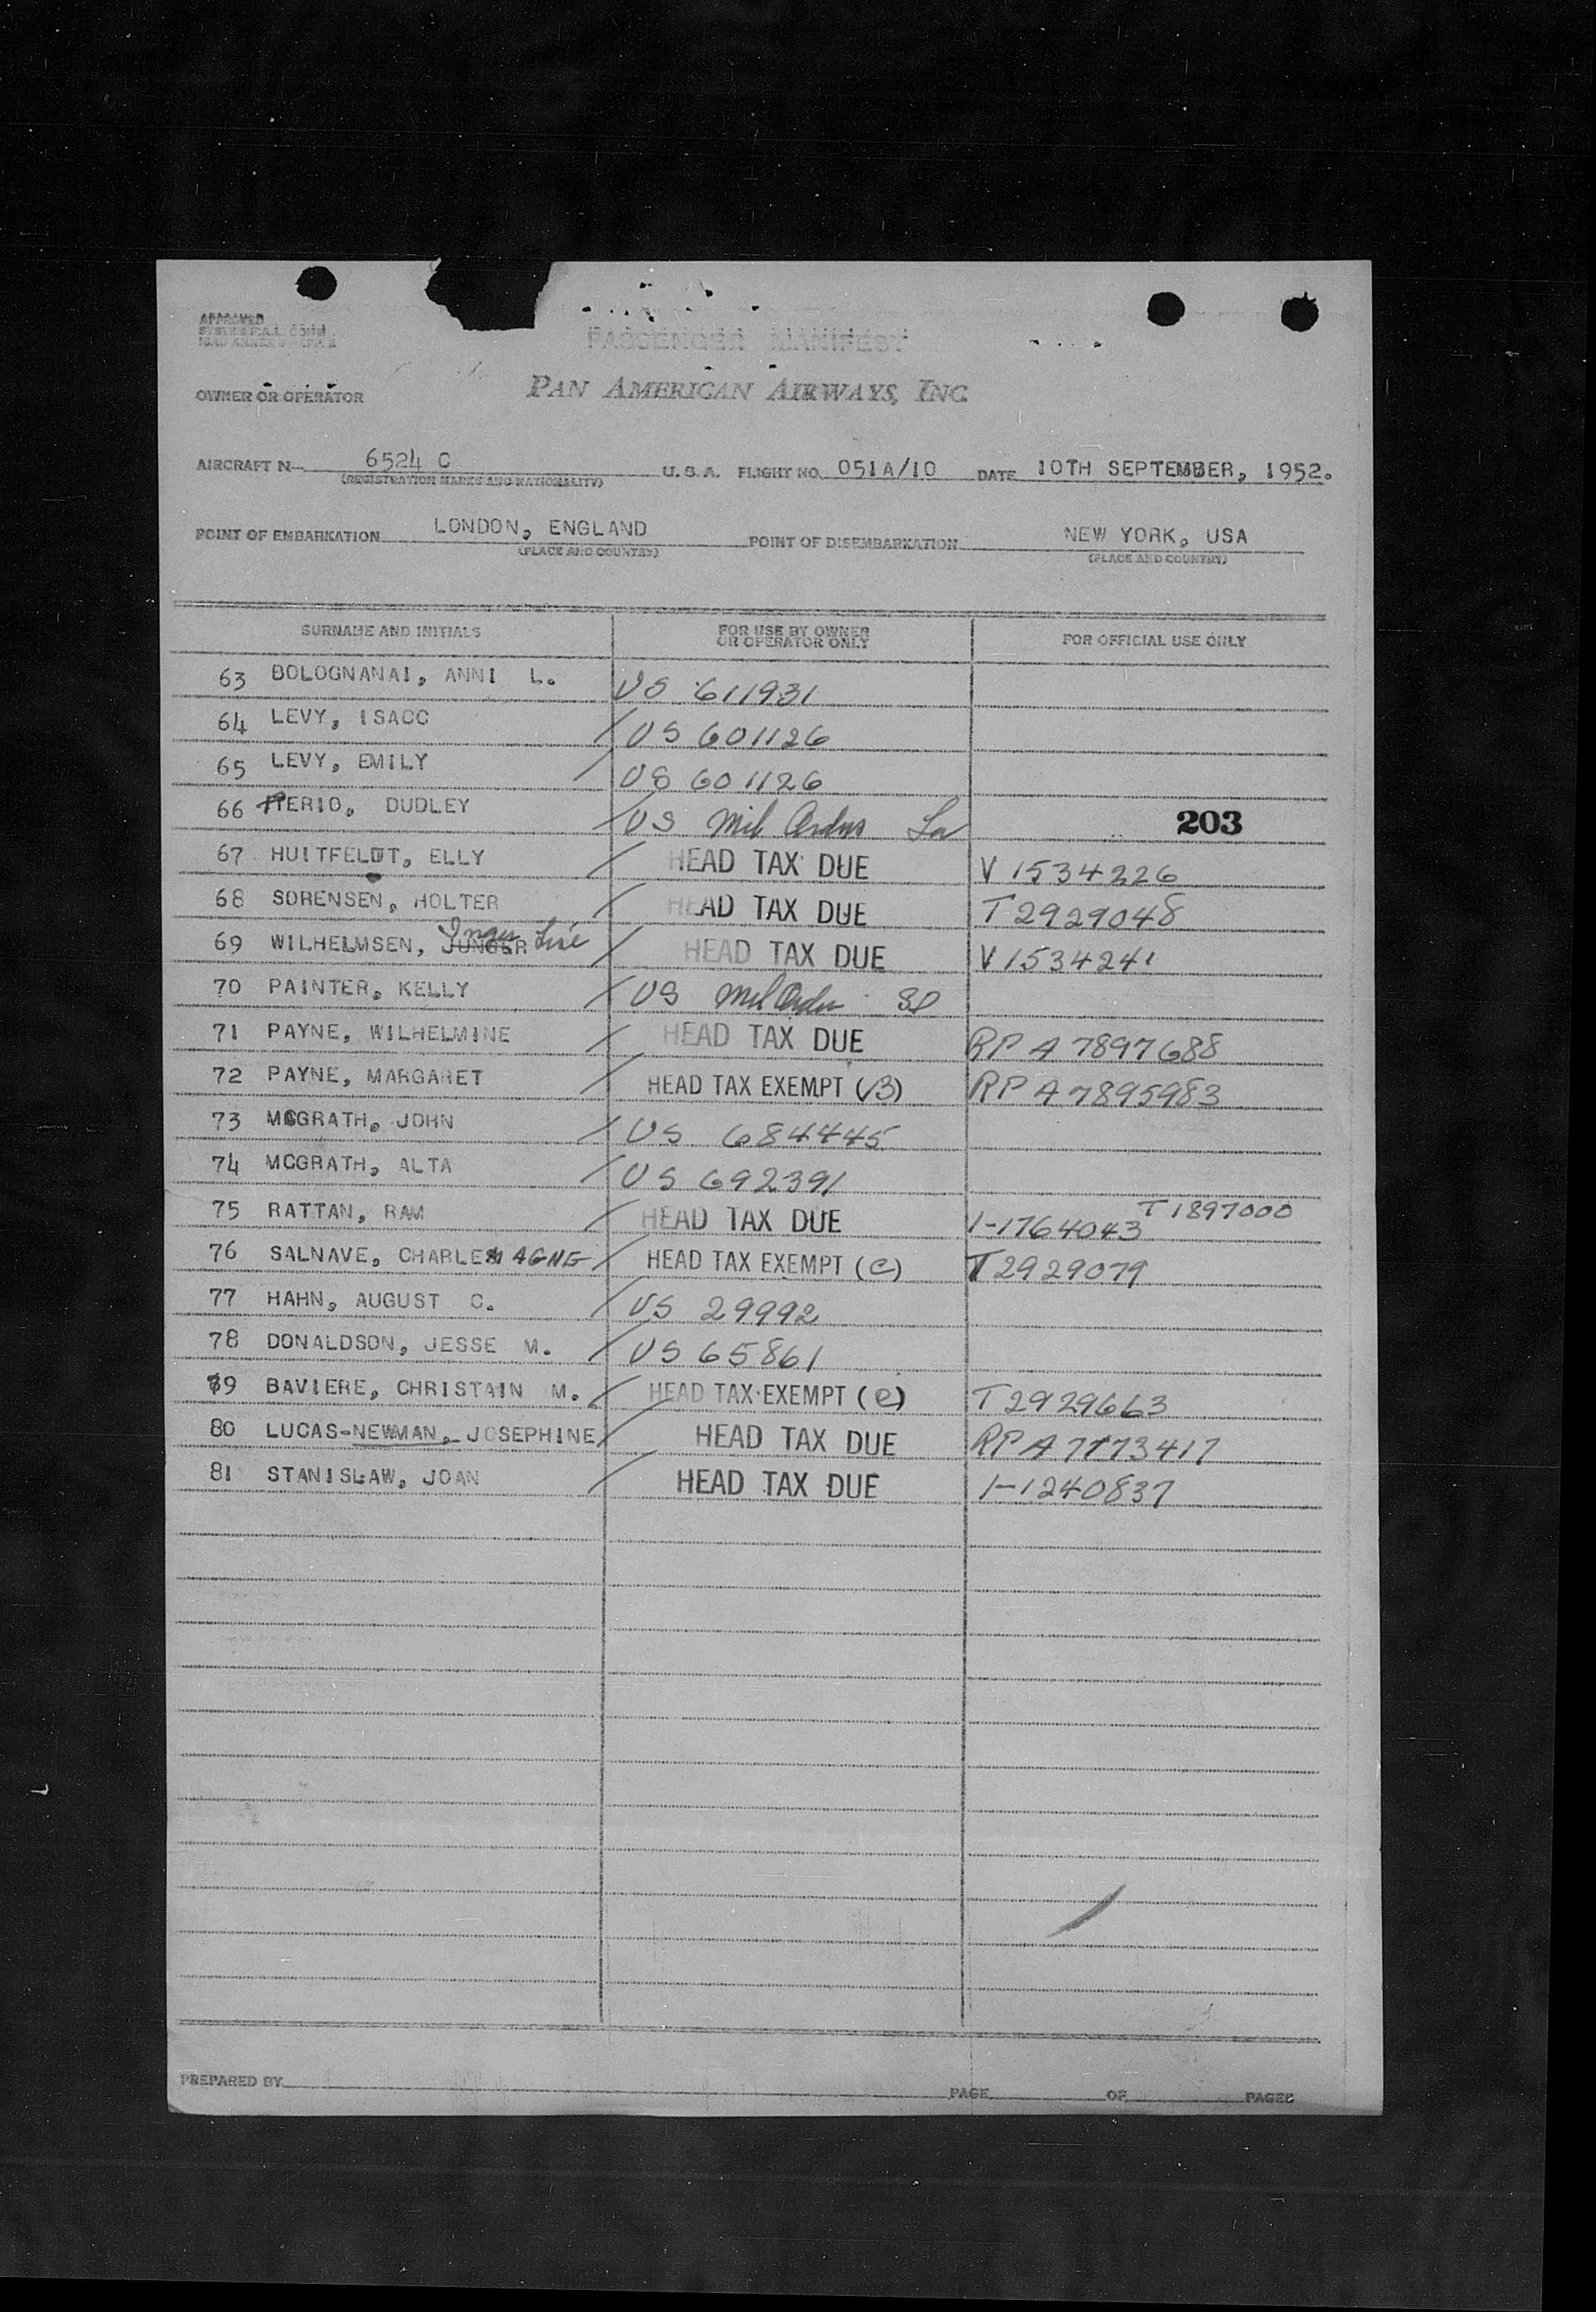 APPROVED
PASSENGER MANIFEST
OWNER OR OPERATOR
PAN AMERICAN AIRWAYS, INC.
AIRCRAFT N 6524 C U. S. A. FLIGHT NO. 051A/10 DATE 10TH SEPTEMBER, 1952.
(REGISTRATION MARKS AND NATIONALITY)
POINT OF EMBARKATION LONDON, ENGLAND POINT OF DISEMBARKATION NEW YORK, USA
(PLACE AND COUNTRY) (PLACE AND COUNTRY)
SURNAME AND INITIALS FOR USE BY OWNER OR OPERATOR ONLY FOR OFFICIAL USE ONLY
63 BOLOGNANAI, ANNI L. US 611931
64 LEVY, ISACC / US 601126
65 LEVY, EMILY / US 601126
66 DUDLEY / US Mil Orders 203
67 HUITFELDT, ELLY / HEAD TAX DUE V 1534226
68 SORENSEN, HOLTER / HEAD TAX DUE T 2929048
69 WILHELMSEN, JUNGER Inger Lise / HEAD TAX DUE V 1534241
70 PAINTER, KELLY / US Mil Order
71 PAYNE, WILHELMINE / HEAD TAX DUE RP A 7897688
72 PAYNE, MARGARET / HEAD TAX EXEMPT (B) RP A 7895983
73 MCGRATH, JOHN / US 684445
74 MCGRATH, ALTA / US 692391
75 RATTAN, RAM / HEAD TAX DUE 1-1764043 T 1897000
76 SALNAVE, CHARLEMAGNE / HEAD TAX EXEMPT (C) T 2929079
77 HAHN, AUGUST C. / US 29992
78 DONALDSON, JESSE M. / US 65861
79 BAVIERE, CHRISTAIN M. / HEAD TAX EXEMPT (C) T 2929663
80 LUCAS-NEWMAN, JOSEPHINE / HEAD TAX DUE RP A 7773417
81 STANISLAW, JOAN / HEAD TAX DUE 1-1240837
PREPARED BY PAGE OF PAGES